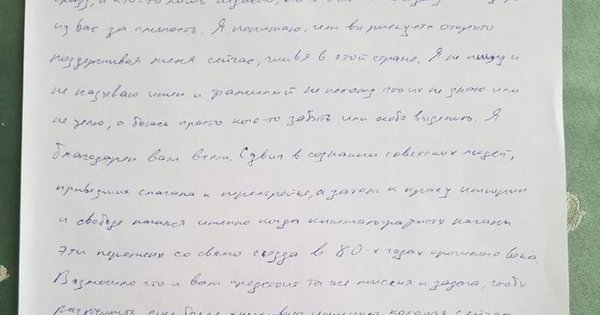 из вас за смелость. Я понимаю, чем вы рискуете открыто
поддерживая меня сейчас, живя в этой стране. Я не пишу и
не называю имен и фамилий не потому что их не знаю или
не ценю, а боюсь просто кого-то забыть или особо выделить. Я
благодарен вам всем. Сдвиг в сознании советских людей,
приведших сначала к перестройке, а затем к краху империи
и свободе начался именно когда кинематографисты начали
эти перемены со своего съезда в 80-х годах прошлого века.
Возможно что и вам предстоит та же миссия и задача, чтобы
разрушить еще более